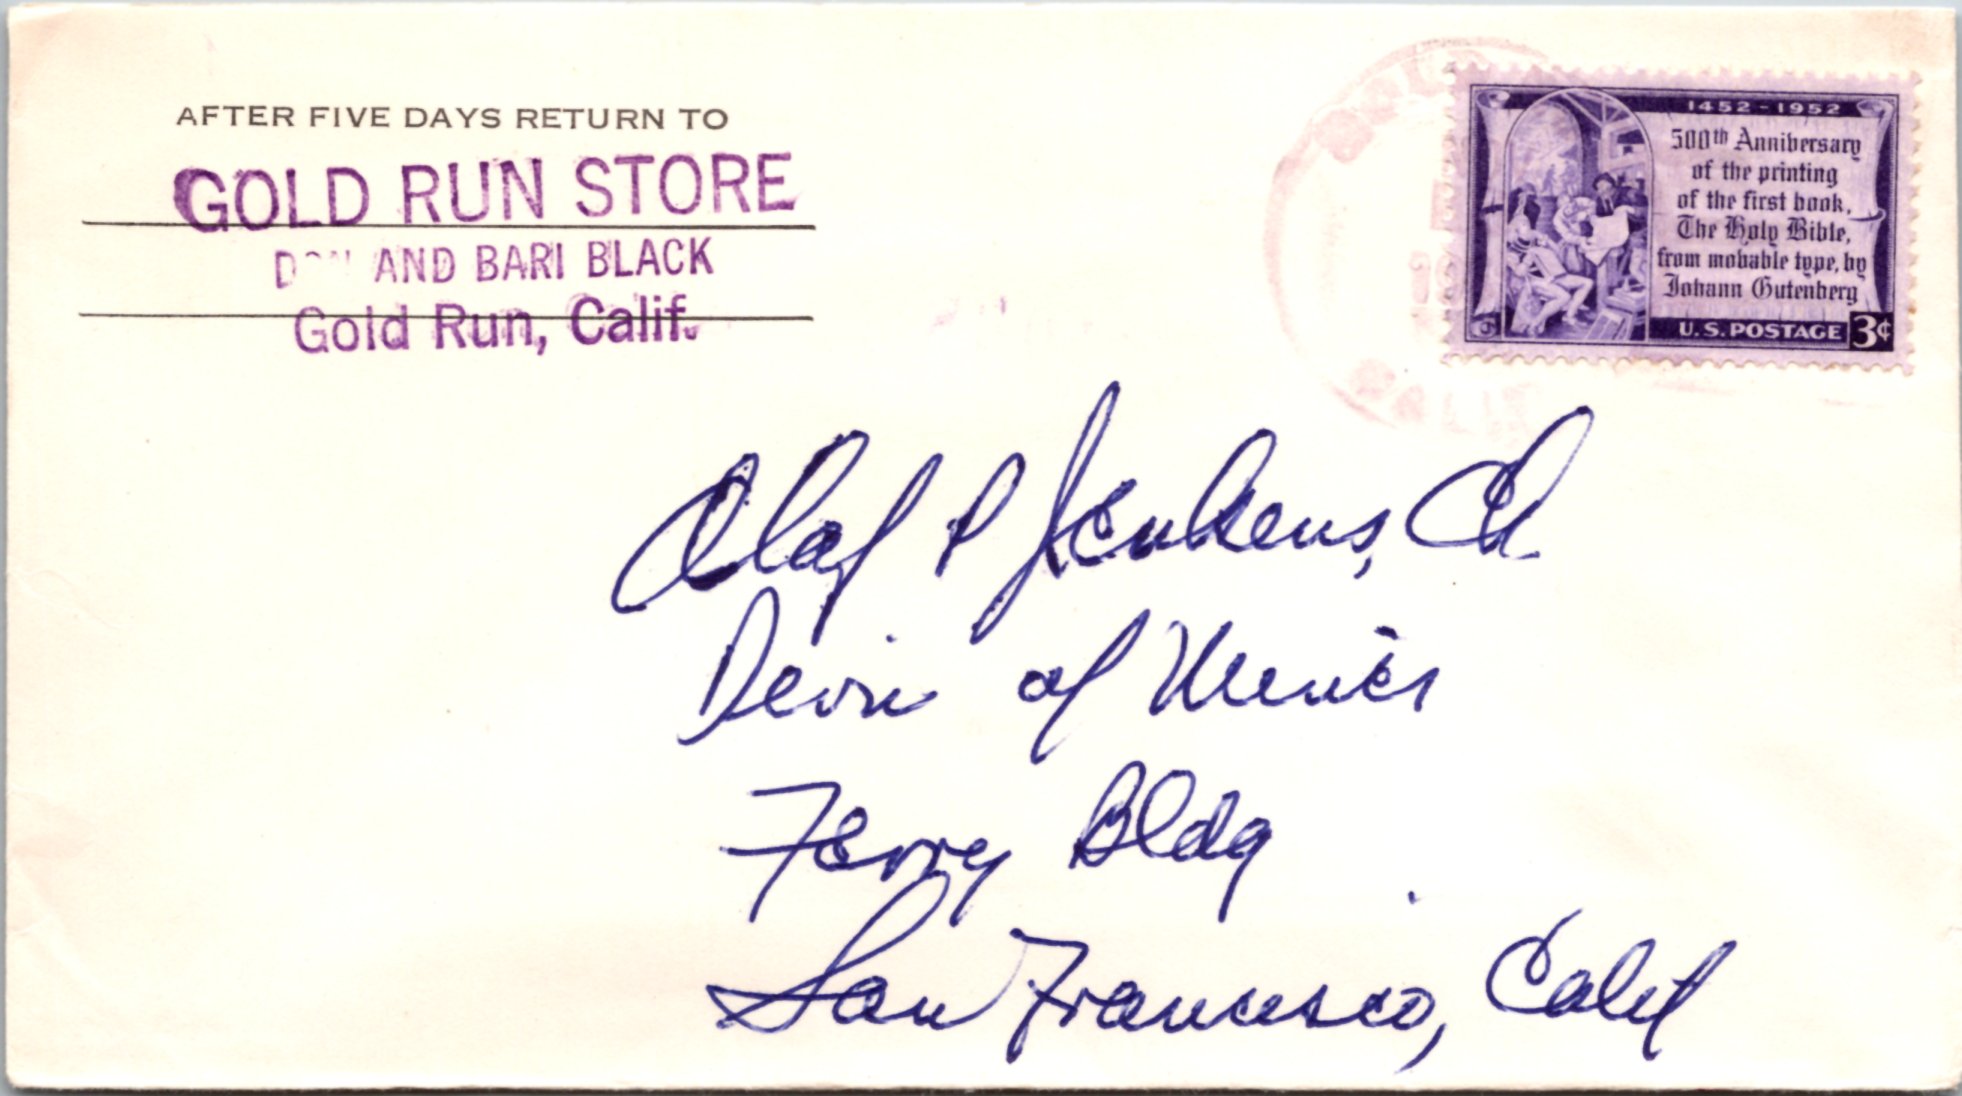 AFTER FIVE DAYS RETURN TO
GOLD RUN STORE
AND BARI BLACK
Gold Run, Calif.
1452-1952
500th Anniversary
of the printing
of the first book,
The Holy Bible,
from movable type, by
Johann Gutenberg
U.S. POSTAGE 3¢
Olaf P Jenkens, Ch
Devin of Mines
Ferry Bldg
San Francisco, Calif